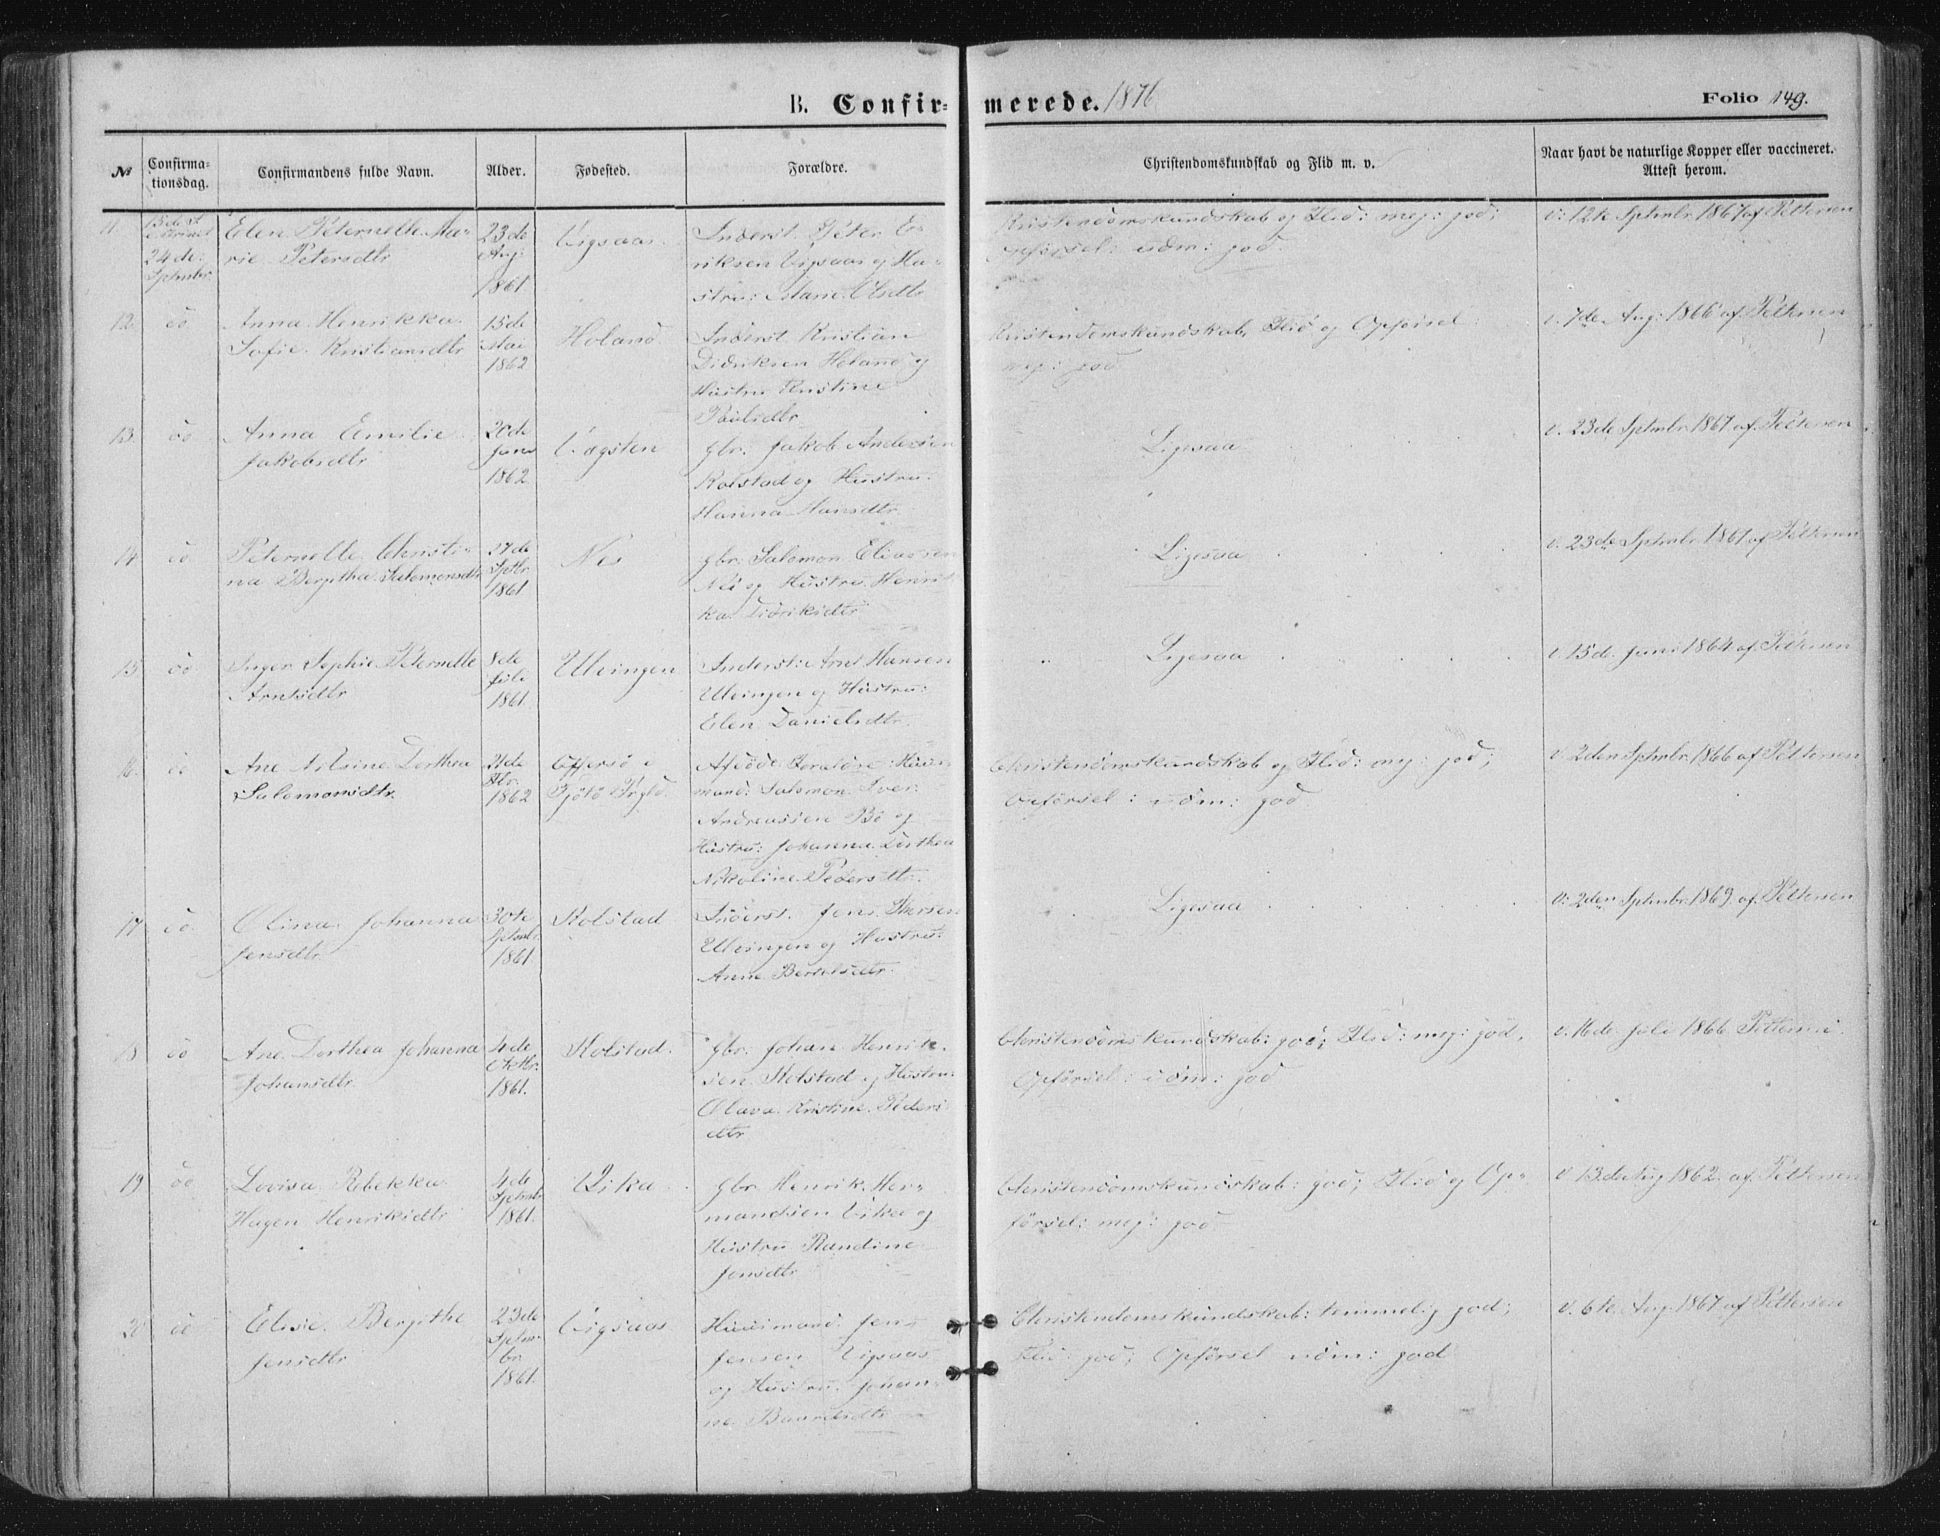 B. Confirmerede. 1876
Folio 149.
№ Confirmationsdag. Confirmandens fulde Navn. Alder. Fødested. Forældre. Christendomskundskab og Flid m. v. Naar havt de naturlige Kopper eller vaccineret. Attest herom.
11 15de S. e. Trinit 24de Sptmbr Elen Peternelle Ma-
rie Petersdtr
23de Aug: 1861
Vigsaas
Inderst Peter E-
riksen Vigsaas og Hu-
stru: Olsdtr
Kristendomskundskab og Flid: meg: god;
Opførsel: udm: god
v: 12te Sptmbr 1867 af Pettersen
12 do Anna Henrikka
Sofie Kristiansdtr
15de Mai 1862
Holand
Inderst Kristian
Didriksen Holand og
Hustru Kristine
Paulsdtr
Kristendomskundskab, Flid og Opførsel
meg: god
v. 7de Aug: 1866 af Pettersen
13 do Anna Emilie
Jakobsdtr
20de 1862
Vaagsten
Gbr. Jakob Andersen
Rolstad og Hustru
Hanna Hansdtr
Ligesaa
v. 23de Sptmbr 1867 af Pettersen
14 do Peternelle Christi-
na Bergitha Salomonsdtr
27de Sptbr 1861
Nes
Gbr. Salomon Eliassen
Nes og Hustru Henrik-
ka Didriksdtr
Ligesaa
v. 23de Sptmbr 1867 af Pettersen
15 do Inger Sophie Peternelle
Arntsdtr
8de Juli 1861
Ulvingen
Inderst: Arnt Hansen
Ulvingen og Hustru:
Elen Danielsdtr
Ligesaa
v. 15de Juni 1864 af Pettersen
16. do Ane Nilsine Dorthea
Salomonsdtr.
21de 1862
Offersø i
Tjøtø Prgld.
Afdøde Forældre: Huus-
mand: Salomon Iver
Andreassen Bø og
Hustru: Johanna Dorthea
Nikoline Pedersdtr.
Christendomskundskab og Flid: meg: god;
Opførsel: udm: god
v. 2den Sptmbr. 1866 af Pettersen
17 do Olina Johanna
Jensdtr
30te Sptmbr 1861
Rolstad
Inderst. Jens Iversen
Ulvingen og Hustru:
Anne Berntsdtr.
Ligesaa
v: 2den Sptmbr. 1869. af Pettersen
18 do Ane Dorthea Johanna
Johansdtr
4de Oktbr. 1861.
Rolstad.
Gbr: Johan Henrik-
sen Rolstad og Hustru:
Olava Kristine Peders
dtr
Christendomskundskab: god; Flid: meg: god,
Opførsel: udm: god
v. 16de Juli 1866 Pettersen
19 do Lovisa Rebekka
Hagen Henriksdtr
4de Sptmbr 1861.
Vika
Gbr Henrik Her-
mandsen Vika og
Hustru Randine
Jonsdtr
Christendomskundskab: god; Flid og Op-
førsel: meg: god
v. 13de Aug 1862. af Pettersen
20 do Elisie Bergithe
Jensdtr
23de Sptm-
br 1861.
Vigsaas
Huusmand Jens
Jensen Vigsaas
og Hustru Johan-
ne Baardsdtr
Christendomskundskab: temmelig god;
Flid: god; Opførsel udm: god
v. 6te Aug 1867 af Pettersen